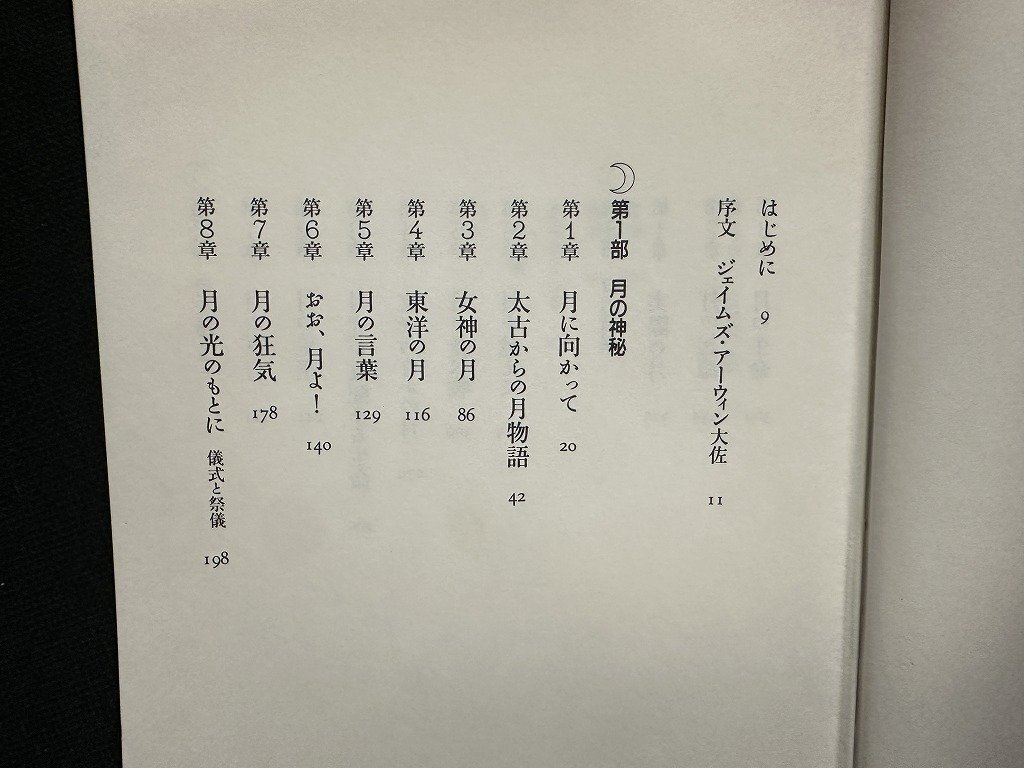 はじめに 9
序文 ジェイムズ・アーウィン大佐 11
第1部 月の神秘
第1章 月に向かって 20
第2章 太古からの月物語 42
第3章 女神の月 86
第4章 東洋の月 116
第5章 月の言葉 129
第6章 おお、月よ! 140
第7章 月の狂気 178
第8章 月の光のもとに 儀式と祭儀 198